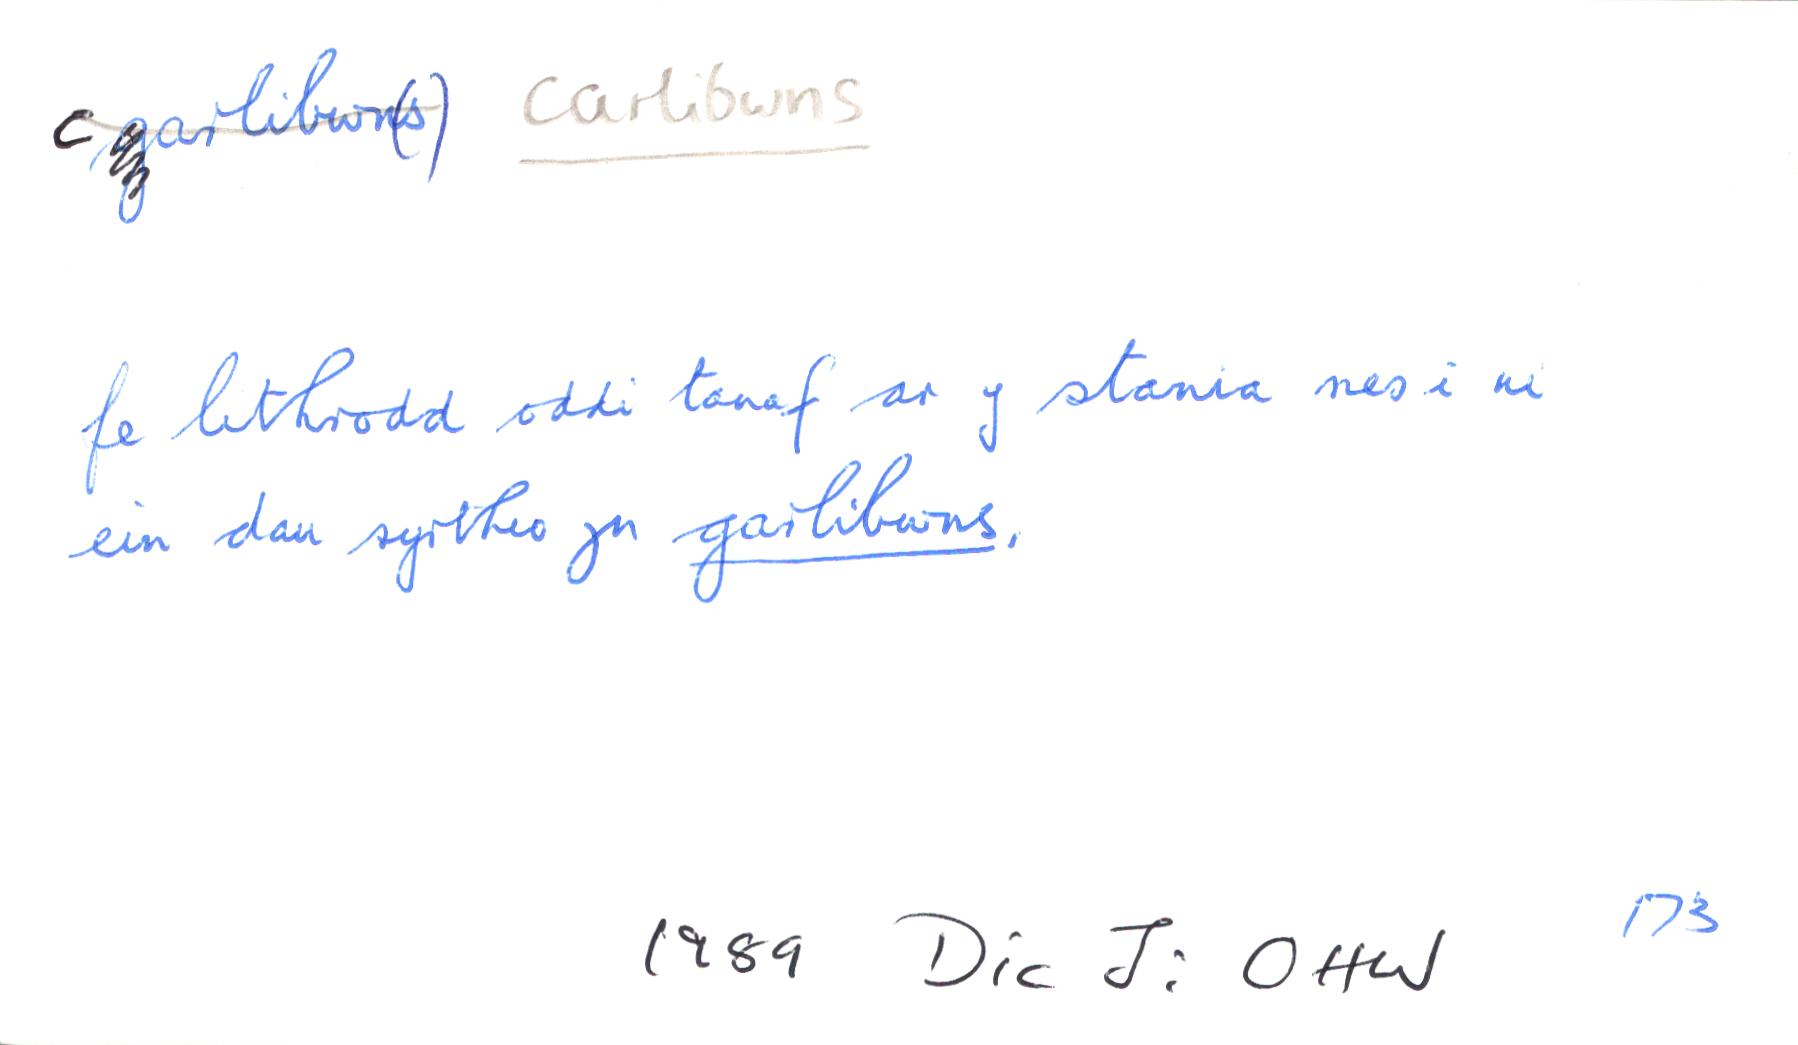 c garlibwn(s) carlibwns
fe lithrodd oddi tanaf ar y stania nes i ni
ein dau syrthio yn garlibwns.
173
1989 Dic J: OHHW